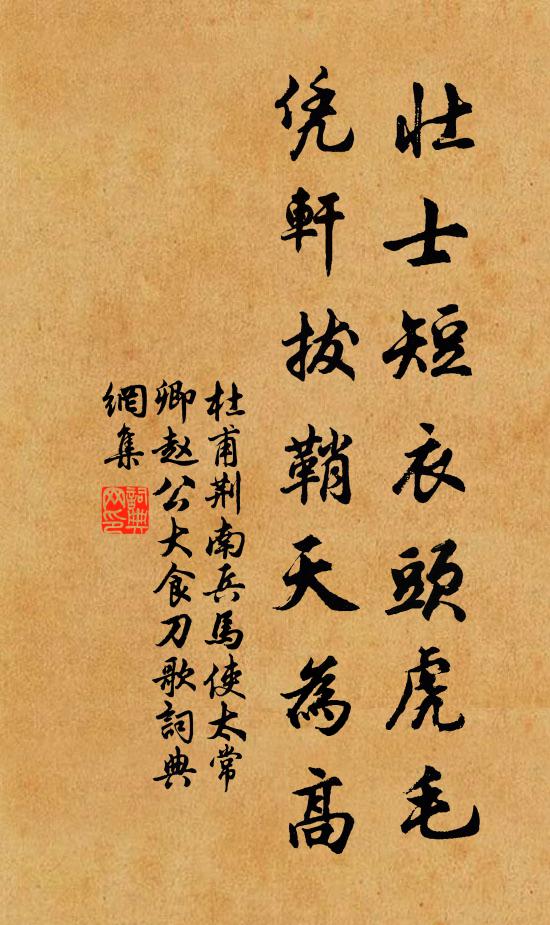 壯士短衣頭虎毛
凭軒拔鞘天為高
杜甫荆南兵馬使太常
卿赵公大食刀歌詞典
網集
詞典
网印